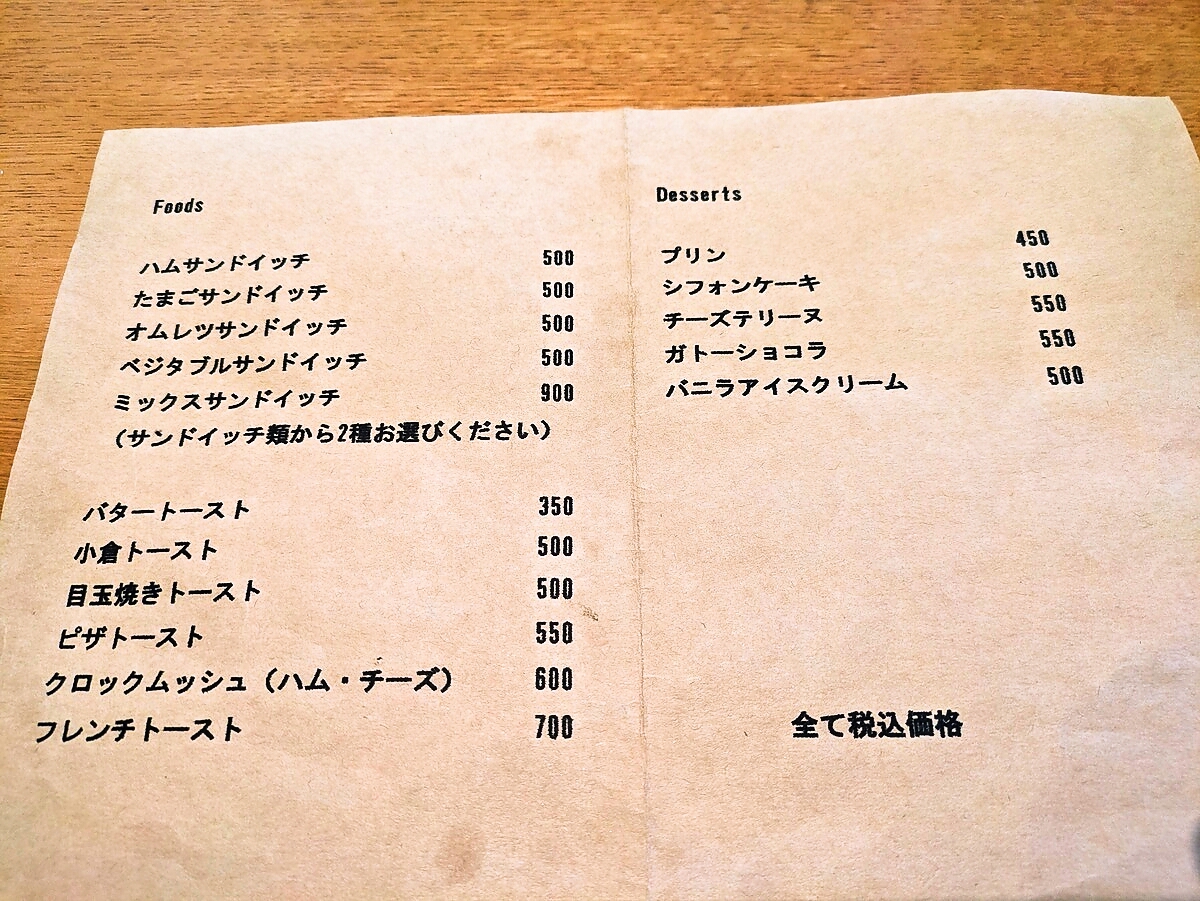 Foods
ハムサンドイッチ 500
たまごサンドイッチ 500
オムレツサンドイッチ 500
ベジタブルサンドイッチ 500
ミックスサンドイッチ 900
（サンドイッチ類から2種お選びください）
バタートースト 350
小倉トースト 500
目玉焼きトースト 500
ピザトースト 550
クロックムッシュ（ハム・チーズ） 600
フレンチトースト 700
Desserts
プリン 450
シフォンケーキ 500
チーズテリーヌ 550
ガトーショコラ 550
バニラアイスクリーム 500
全て税込価格